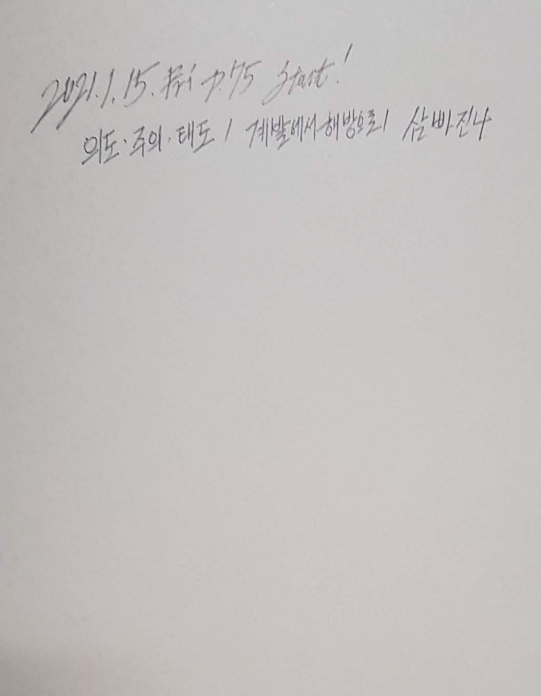 2021.1.15. Fri p.75 start!
의도·주의·태도 / 계발에서 해방으로 / 삼빠진냐